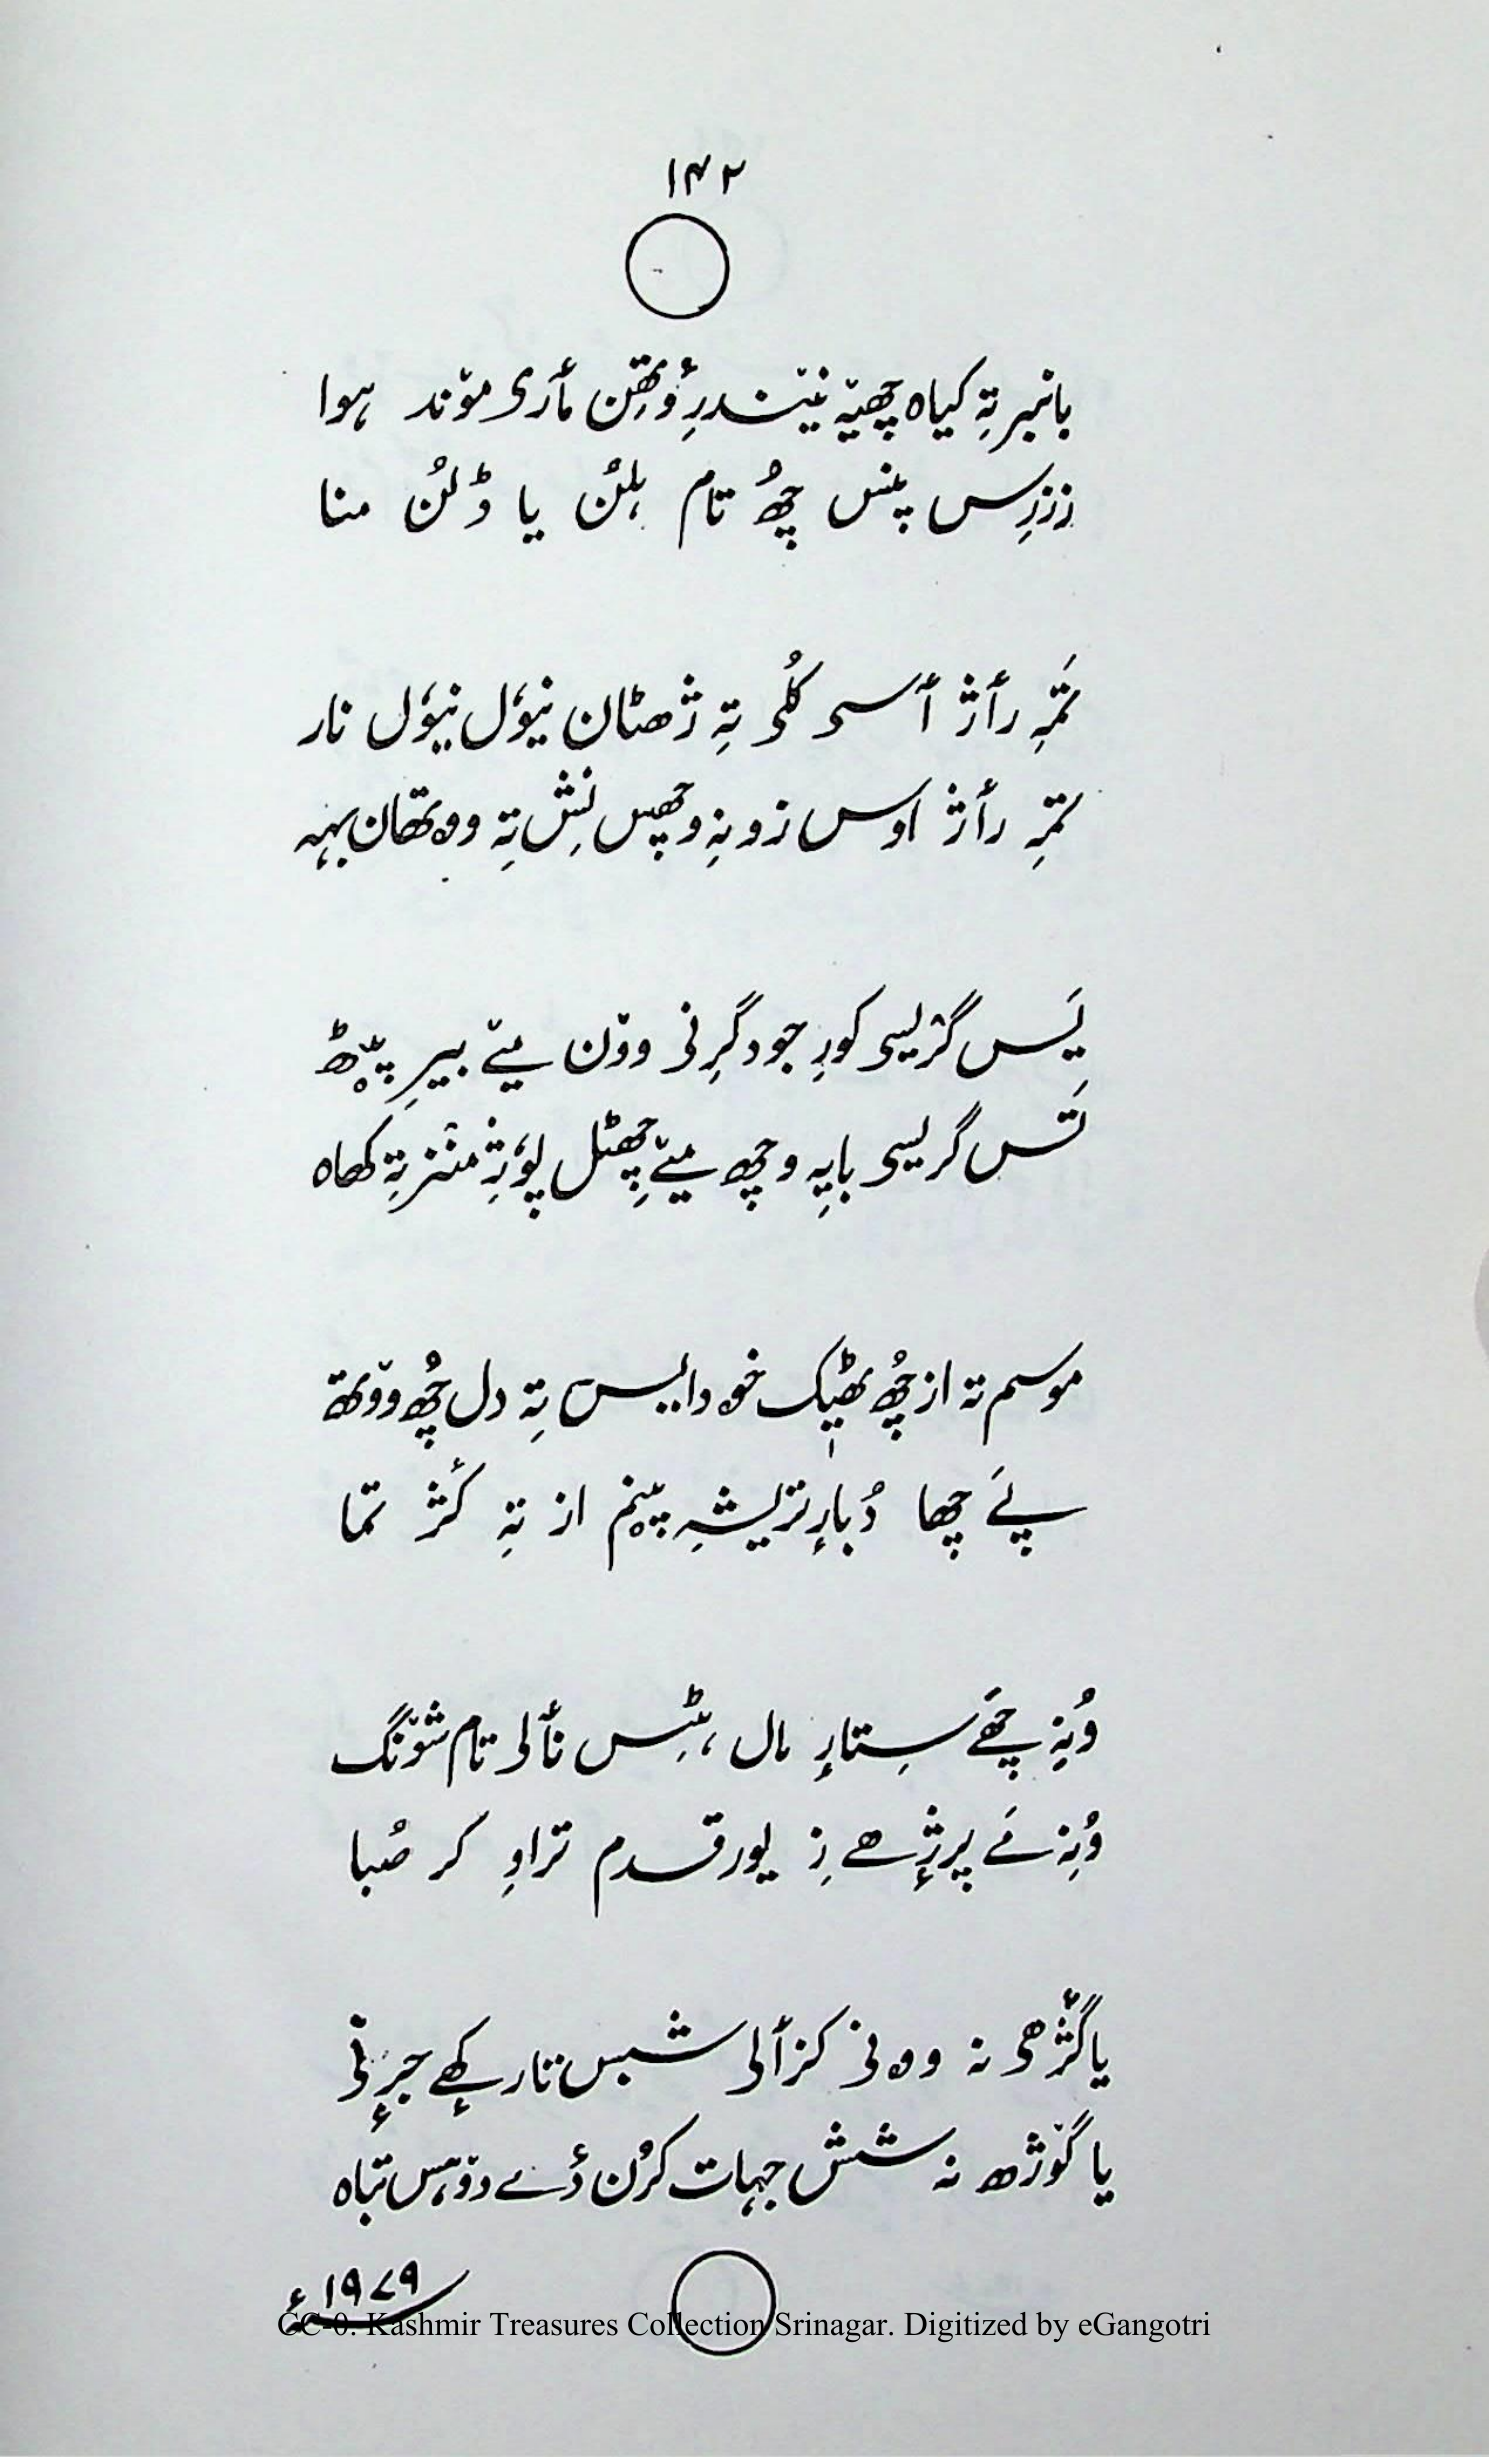 ۱۴۲
بانبرتہِ کیاہ چھیہٚ نیٚندرِ وٕتھِن مٲری موٚند ہوا
ززرِس پنس چھُ تام ہلُن یا ڈلُن منا
تَمہِ رٲژ ٲسی کُلی تہِ ژھٹان نیوٗل نیوٗل نار
تمہِ رٲژ اوس زونہِ وچھس نِش تہِ ووتھان بہہ
یَس گریسی کورِ جود گرِنی ووٚن میےٚ بیرِ پیٚٹھ
تَس گریسی بایہِ وچھ میےٚ چھِٹل پوٗتِژ منٛز تہِ کھاہ
موسم تہ از چھُ ٹھیٖک خودایس تہِ دل چھُ ووٚتھ
پےَ چھا دُبارٕ تریشہِ پینم از تہِ کٔژ تما
وُنہِ چھَے سِتارٕ مال، ہٹِس نٲلی تام شوٚنگ
وُنہِ مَے پرژٕھے زِ یور قدم تراوِ کر صُبا
یا گٔژھی نہ وونی کزٲلی شبس تار کھٕے جرٕنی
یا گوٚژھ نہ شش جہات کرُن دٔے دوٚہس تباہ
۱۹۷۹ء
CC-0. Kashmir Treasures Collection Srinagar. Digitized by eGangotri